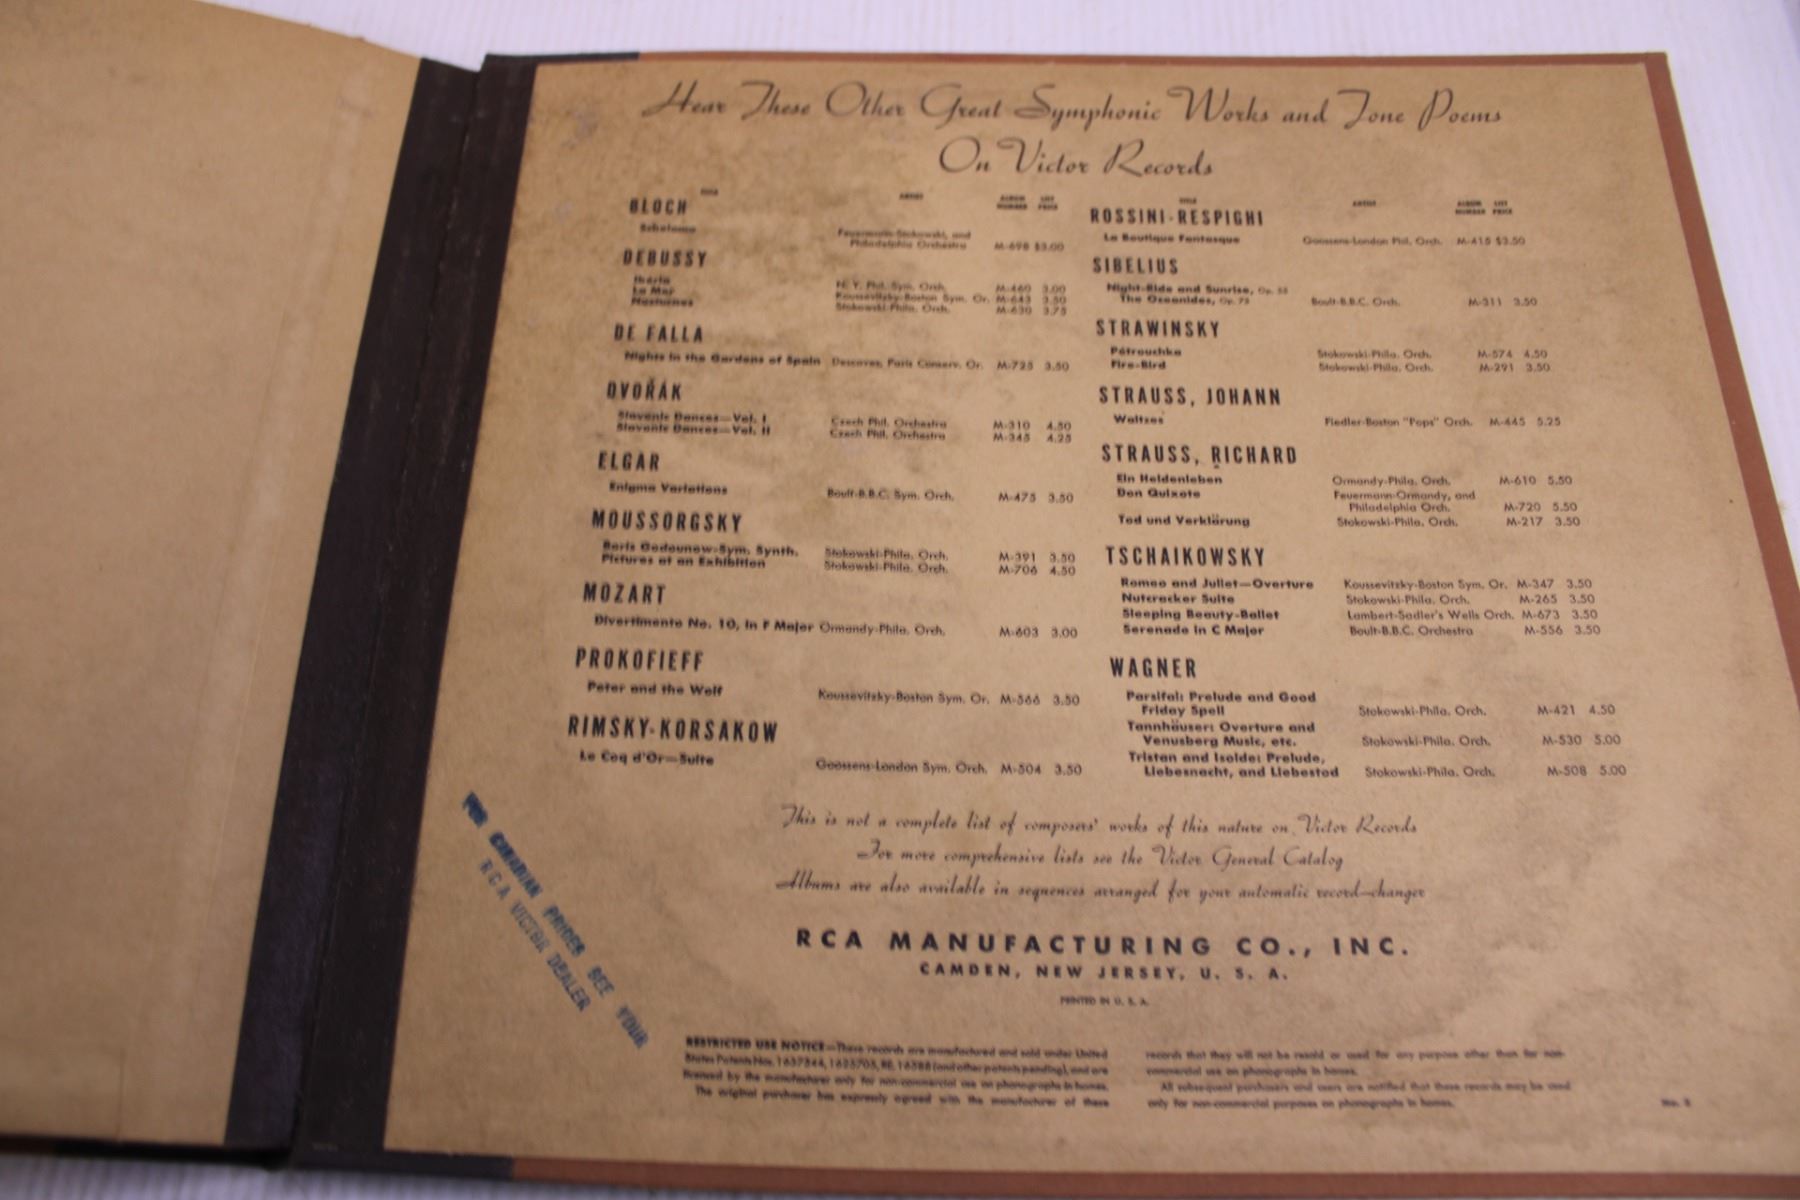 Hear These Other Great Symphonic Works and Tone Poems
On Victor Records
TITLE ARTIST ALBUM NUMBER LIST PRICE
BLOCH
Schelomo Feuermann-Stokowski, and
Philadelphia Orchestra M-698 $3.00
DEBUSSY
Iberia N. Y. Phil. Sym. Orch. M-460 3.00
La Mer Koussevitzky-Boston Sym. Or. M-643 3.50
Nocturnes Stokowski-Phila. Orch. M-630 3.75
DE FALLA
Nights in the Gardens of Spain Descaves, Paris Conserv. Or. M-725 3.50
DVOŘÁK
Slavonic Dances—Vol. I Czech Phil. Orchestra M-310 4.50
Slavonic Dances—Vol. II Czech Phil. Orchestra M-345 4.25
ELGAR
Enigma Variations Boult-B.B.C. Sym. Orch. M-475 3.50
MOUSSORGSKY
Boris Godounow-Sym. Synth. Stokowski-Phila. Orch. M-391 3.50
Pictures at an Exhibition Stokowski-Phila. Orch. M-706 4.50
MOZART
Divertimento No. 10, in F Major Ormandy-Phila. Orch. M-603 3.00
PROKOFIEFF
Peter and the Wolf Koussevitzky-Boston Sym. Or. M-566 3.50
RIMSKY-KORSAKOW
Le Coq d'Or—Suite Goossens-London Sym. Orch. M-504 3.50
TITLE ARTIST ALBUM NUMBER LIST PRICE
ROSSINI-RESPIGHI
La Boutique Fantasque Goossens-London Phil. Orch. M-415 $3.50
SIBELIUS
Night-Ride and Sunrise, Op. 55
The Oceanides, Op. 73 Boult-B.B.C. Orch. M-311 3.50
STRAWINSKY
Pétrouchka Stokowski-Phila. Orch. M-574 4.50
Fire-Bird Stokowski-Phila. Orch. M-291 3.50
STRAUSS, JOHANN
Waltzes Fiedler-Boston "Pops" Orch. M-445 5.25
STRAUSS, RICHARD
Ein Heldenleben Ormandy-Phila. Orch. M-610 5.50
Don Quixote Feuermann-Ormandy, and
Philadelphia Orch. M-720 5.50
Tod und Verklärung Stokowski-Phila. Orch. M-217 3.50
TSCHAIKOWSKY
Romeo and Juliet—Overture Koussevitzky-Boston Sym. Or. M-347 3.50
Nutcracker Suite Stokowski-Phila. Orch. M-265 3.50
Sleeping Beauty-Ballet Lambert-Sadler's Wells Orch. M-673 3.50
Serenade in C Major Boult-B.B.C. Orchestra M-556 3.50
WAGNER
Parsifal: Prelude and Good
Friday Spell Stokowski-Phila. Orch. M-421 4.50
Tannhäuser: Overture and
Venusberg Music, etc. Stokowski-Phila. Orch. M-530 5.00
Tristan and Isolde: Prelude,
Liebesnacht, and Liebestod Stokowski-Phila. Orch. M-508 5.00
This is not a complete list of composers' works of this nature on Victor Records
For more comprehensive lists see the Victor General Catalog
Albums are also available in sequences arranged for your automatic record-changer
RCA MANUFACTURING CO., INC.
CAMDEN, NEW JERSEY, U. S. A.
PRINTED IN U. S. A.
FOR CANADIAN PRICES SEE YOUR
RCA VICTOR DEALER
RESTRICTED USE NOTICE—These records are manufactured and sold under United
States Patents Nos. 1637544, 1625705, RE. 16588 (and other patents pending), and are
licensed by the manufacturer only for non-commercial use on phonographs in homes.
The original purchaser has expressly agreed with the manufacturer of these
records that they will not be resold or used for any purpose other than for non-
commercial use on phonographs in homes.
All subsequent purchasers and users are notified that these records may be used
only for non-commercial purposes on phonographs in homes.